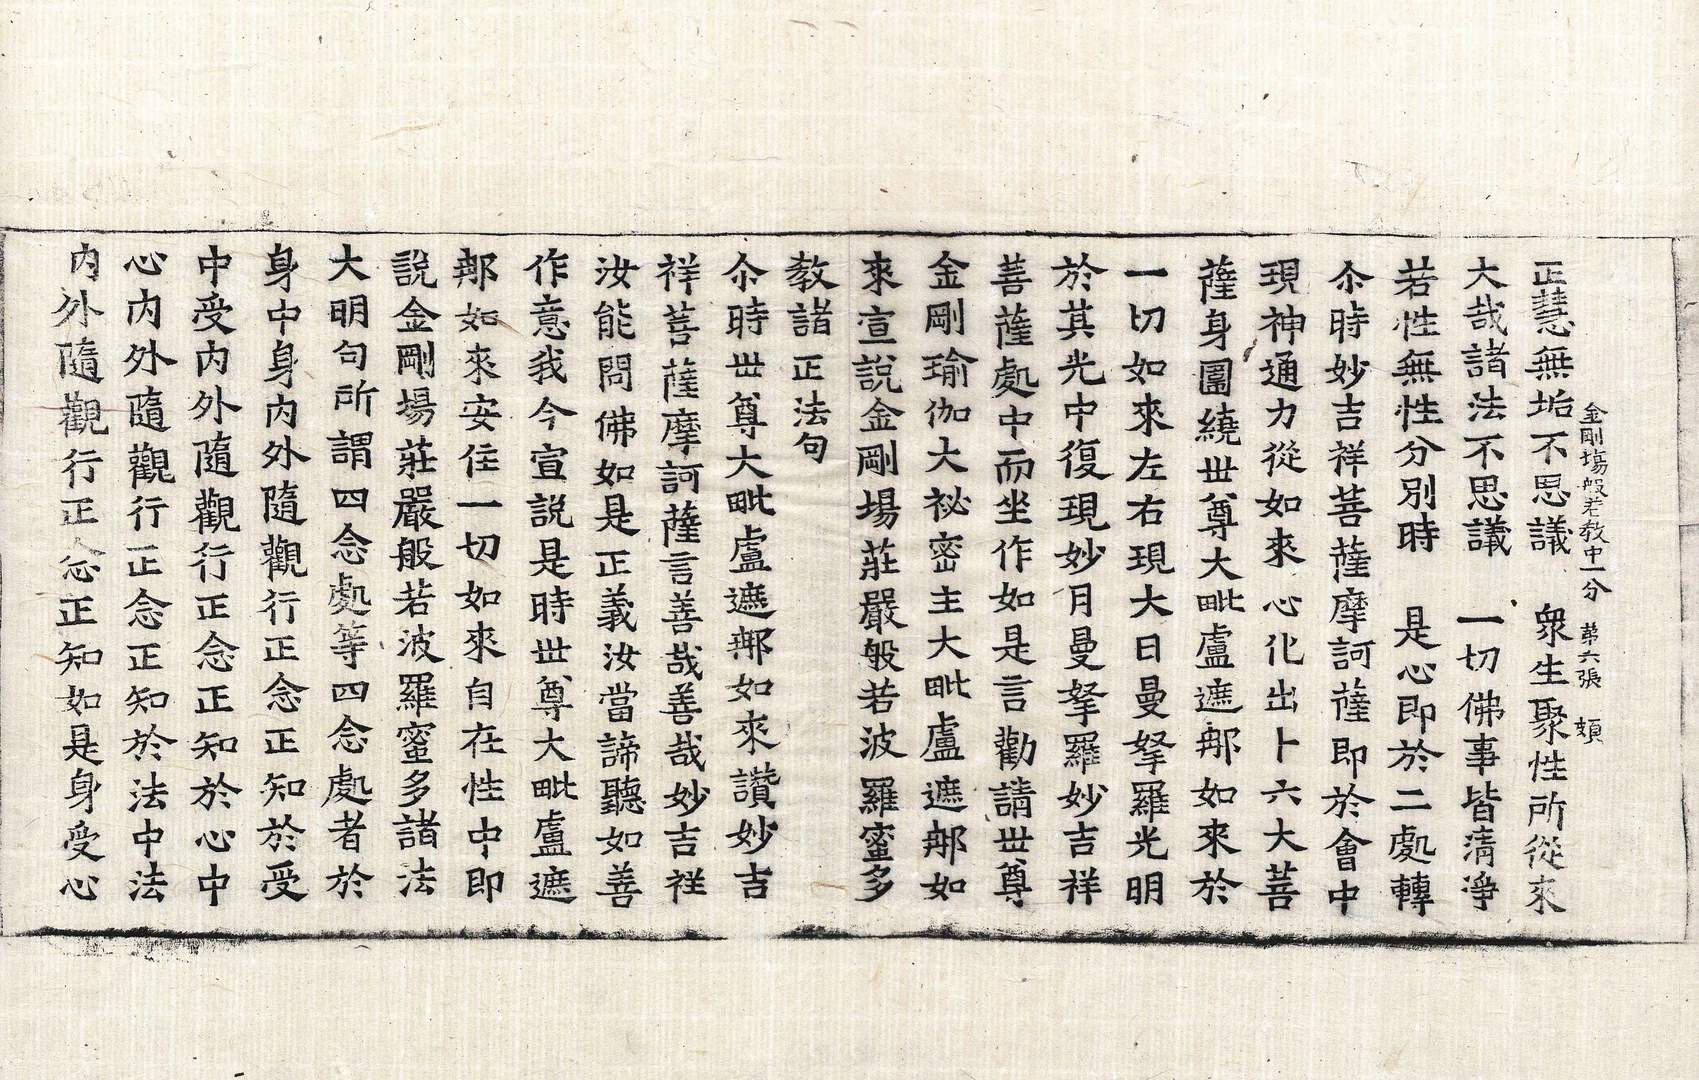 金剛場般若教中一分 第六張 頞
正慧無垢不思議 衆生聚性所從來
大哉諸法不思議 一切佛事皆清淨
若性無性分別時 是心即於二處轉
尒時妙吉祥菩薩摩訶薩即於會中
現神通力從如來心化出卜六大菩
薩身圍繞世尊大毗盧遮郍如來於
一切如來左右現大日曼拏羅光明
於其光中復現妙月曼拏羅妙吉祥
菩薩處中而坐作如是言勸請世尊
金剛瑜伽大祕密主大毗盧遮郍如
來宣說金剛場莊嚴般若波羅蜜多
教諸正法句
尒時世尊大毗盧遮郍如來讚妙吉
祥菩薩摩訶薩言善哉善哉妙吉祥
汝能問佛如是正義汝當諦聽如善
作意我今宣說是時世尊大毗盧遮
郍如來安住一切如來自在性中即
說金剛場莊嚴般若波羅蜜多諸法
大明句所謂四念處等四念處者於
身中身內外隨觀行正念正知於受
中受內外隨觀行正念正知於心中
心內外隨觀行正念正知於法中法
內外隨觀行正念正知如是身受心